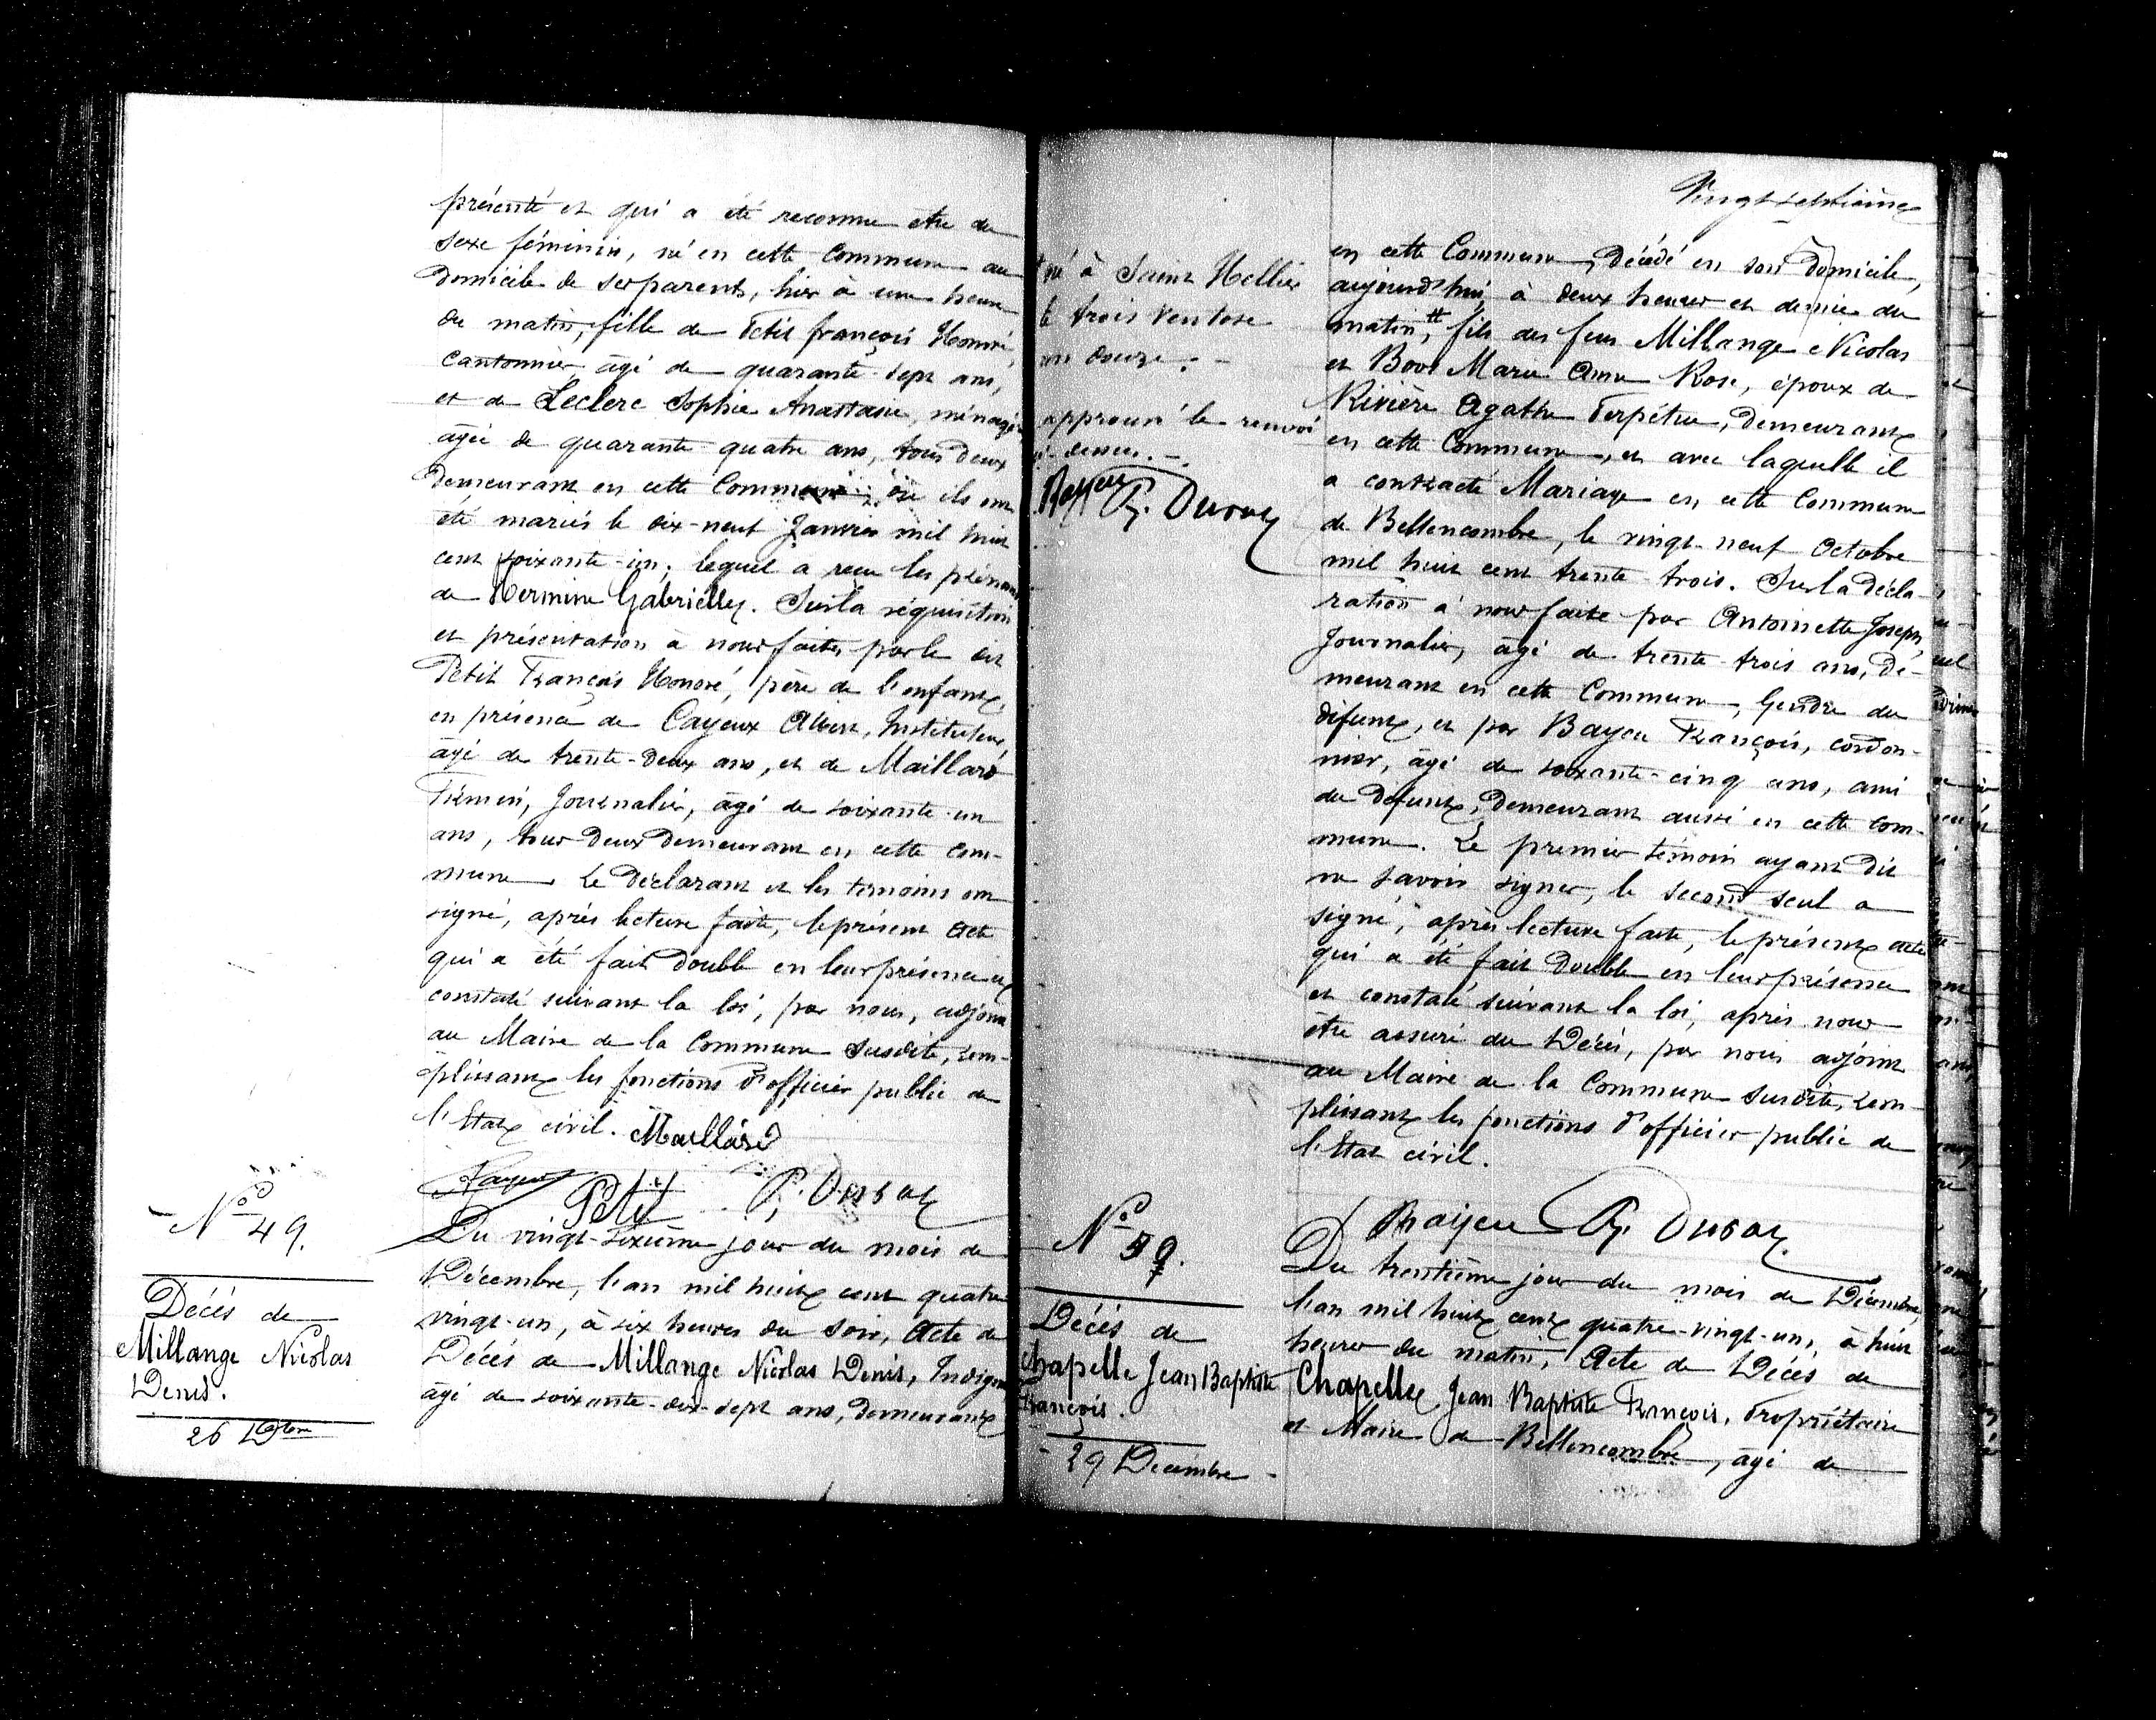 présenté et qui a été reconnu être du
sexe féminin, né en cette Commune au
Domicile de ses parents, hier à une heure
du matin, fille de Petit françois Honoré,
Cantonnier, âgé de quarante-sept ans,
et de Leclerc Sophie Anastasie, ménagère
âgée de quarante-quatre ans, tous deux
Demeurant en cette Commune, où ils ont
été mariés le dix-neuf Janvier mil huit
cent soixante-un; lequel a reçu les prénoms
de Hermine Gabrielle. Sur la réquisition
et présentation à nous faites par le dit
Petit François Honoré, père de l'enfant,
en présence de Cayeux Albert, Instituteur,
âgé de trente-deux ans, et de Maillard
Firmin, Journalier, âgé de soixante-un
ans, tous deux demeurant en cette Com-
mune. Le Déclarant et les témoins ont
signé, après lecture faite, le présent acte
qui a été fait double en leur présence et
constaté suivant la loi, par nous, adjoint
au Maire de la Commune susdite, rem-
plissant les fonctions d'officier public de
l'Etat civil. Maillard
Cayeux Petit P. Duval
N° 49.
Décès de
Millange Nicolas
Denis.
26 Dbre
Du vingt-sixième jour du mois de
Décembre, l'an mil huit cent quatre
vingt-un, à six heures du soir, Acte de
Décès de Millange Nicolas Denis, Indigent
âgé de soixante-dix-sept ans, demeurant
Vingt septième
en cette Commune, Décédé en son domicile,
aujourd'hui à deux heures et demie du
matin, # fils des feus Millange Nicolas
et Marie Anne Rose, époux de
Rivière Agathe Perpétue, Demeurant
en cette Commune, et avec laquelle il
a contracté Mariage en cette Commune
de Bellencombre, le vingt-neuf Octobre
mil huit cent trente-trois. Sur la Décla-
ration à nous faite par Antoinette Joseph,
Journalier, âgé de trente-trois ans, De-
meurant en cette Commune, Gendre du
défunt, et par Bayeu François, cordon-
nier, âgé de soixante-cinq ans, ami
du Défunt, Demeurant aussi en cette com-
mune. Le premier témoin ayant dit
ne savoir signer, le second seul a
signé, après lecture faite, le présent acte
qui a été fait Double en leur présence
et constaté suivant la loi, après nous
être assuré du Décès, par nous adjoint
au Maire de la Commune susdite, rem-
plissant les fonctions d'officier public de
l'Etat civil.
P. Duval
# né à Saint Hellier
le trois Ventose
an douze.
approuvé le renvoi
ci-dessus.
P. Duval
N° 50.
Décès de
Chapelle Jean Baptiste
François.
29 Décembre
Du trentième jour du mois de Décembre,
l'an mil huit cent quatre-vingt-un, à huit
heures du matin, Acte de Décès de
Chapelle Jean Baptiste François, Propriétaire
et Maire de Bellencombre, âgé de